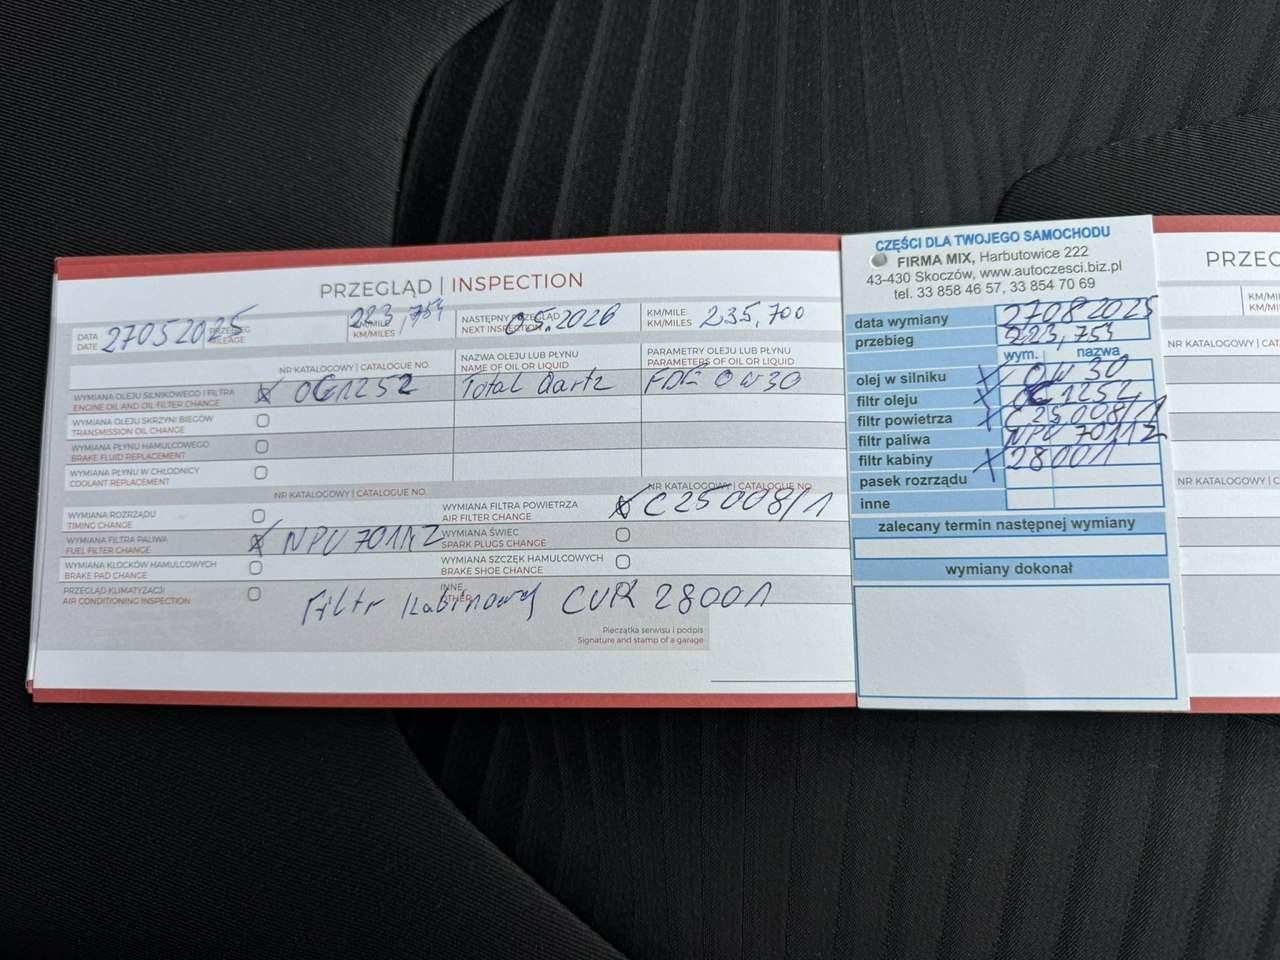 PRZEGLĄD | INSPECTION
DATA
DATE
27052025
PRZEBIEG
MILEAGE
KM/MILE
KM/MILES
223,754
NASTĘPNY PRZEGLĄD
NEXT INSPECTION
05.2026
KM/MILE
KM/MILES
235,700
NR KATALOGOWY | CATALOGUE NO.
NAZWA OLEJU LUB PŁYNU
NAME OF OIL OR LIQUID
PARAMETRY OLEJU LUB PŁYNU
PARAMETERS OF OIL OR LIQUID
WYMIANA OLEJU SILNIKOWEGO I FILTRA
ENGINE OIL AND OIL FILTER CHANGE
X OC1252
Total Qartz
FDE 0W30
WYMIANA OLEJU SKRZYNI BIEGÓW
TRANSMISSION OIL CHANGE
WYMIANA PŁYNU HAMULCOWEGO
BRAKE FLUID REPLACEMENT
WYMIANA PŁYNU W CHŁODNICY
COOLANT REPLACEMENT
NR KATALOGOWY | CATALOGUE NO.
NR KATALOGOWY | CATALOGUE NO.
WYMIANA ROZRZĄDU
TIMING CHANGE
WYMIANA FILTRA POWIETRZA
AIR FILTER CHANGE
X C25008/1
WYMIANA FILTRA PALIWA
FUEL FILTER CHANGE
X
WYMIANA ŚWIEC
SPARK PLUGS CHANGE
WYMIANA KLOCKÓW HAMULCOWYCH
BRAKE PAD CHANGE
WYMIANA SZCZĘK HAMULCOWYCH
BRAKE SHOE CHANGE
PRZEGLĄD KLIMATYZACJI
AIR CONDITIONING INSPECTION
INNE
OTHER
Filtr Kabinowy CUK 28001
Pieczątka serwisu i podpis
Signature and stamp of a garage
CZĘŚCI DLA TWOJEGO SAMOCHODU
FIRMA MIX, Harbutowice 222
43-430 Skoczów, www.autoczesci.biz.pl
tel. 33 858 46 57, 33 854 70 69
data wymiany 27082025
przebieg 223,754
wym. nazwa
olej w silniku X 0W30
filtr oleju X OC1252
filtr powietrza X C25008/1
filtr paliwa
filtr kabiny X 28001
pasek rozrządu
inne
zalecany termin następnej wymiany
wymiany dokonał
KM/MI
KM/MI
NR KATALOGOWY | C
NR KATALOGOWY | CATA